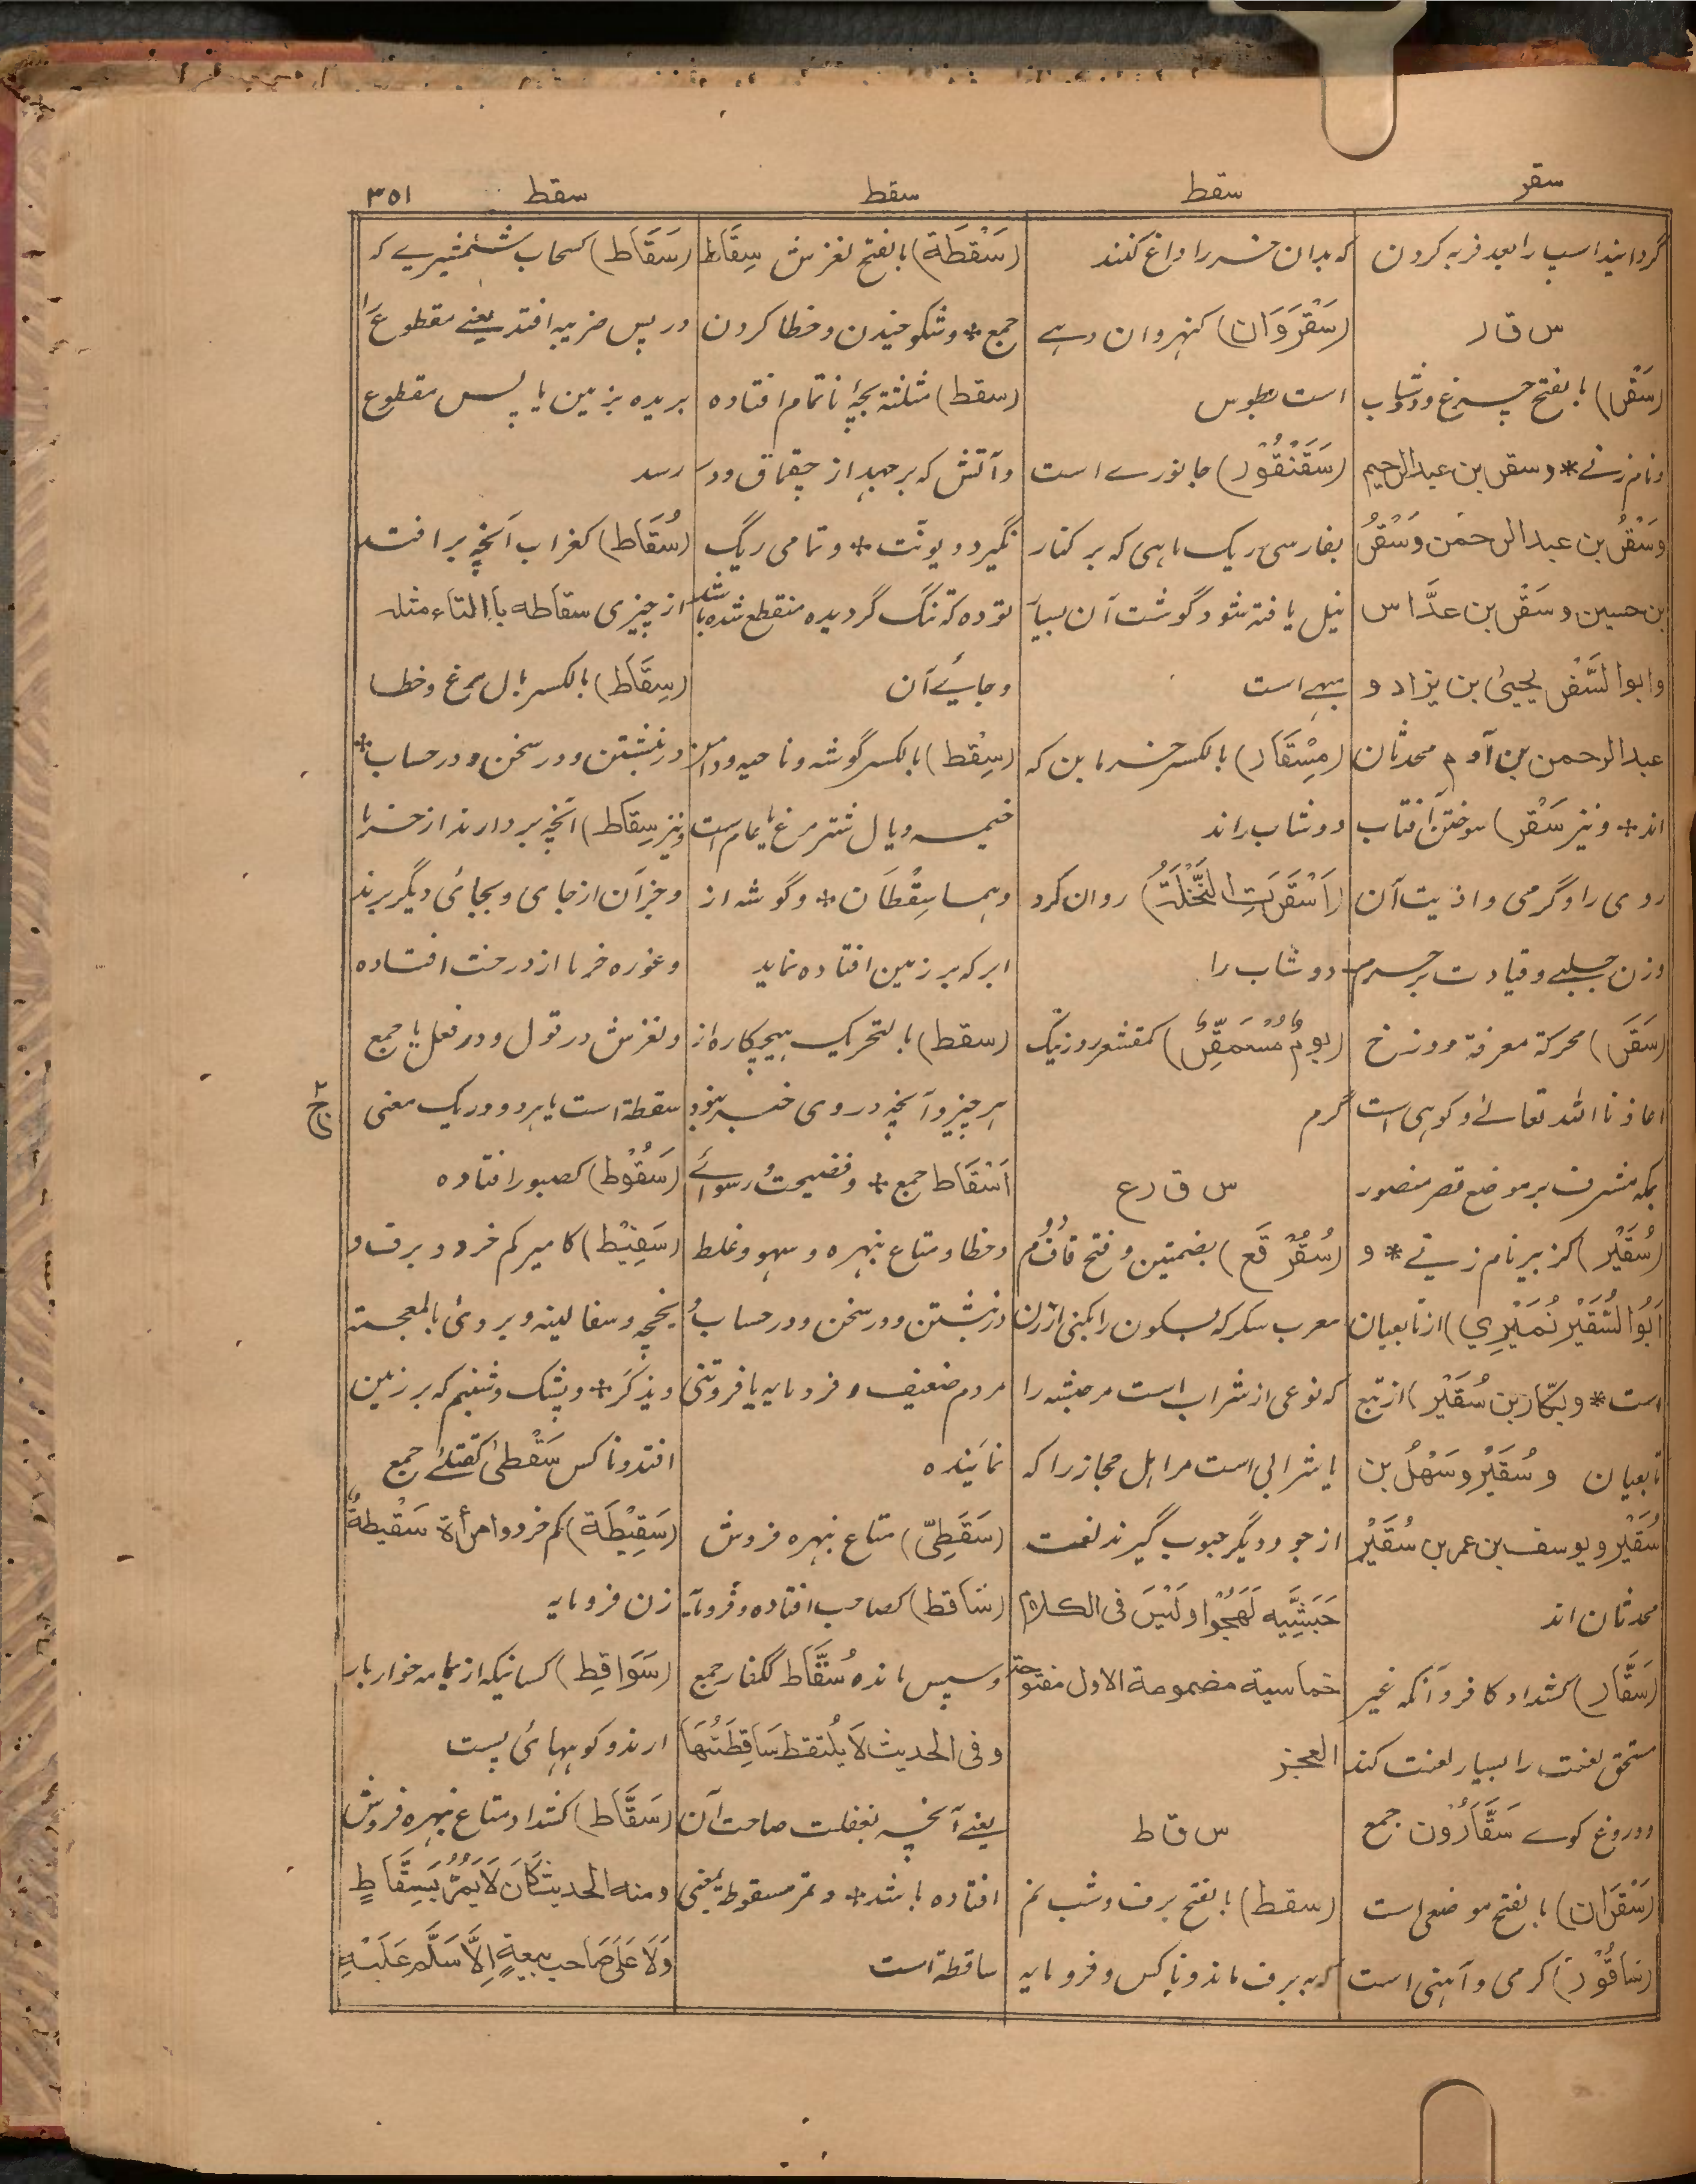 سقر
سقط
سقط
سقط
۳۵۱
گردانیدا سپ را بعد فربه کردن
س ق ر
(سَقْر) بالفتح چرغ و دوشاب
ونام زنے * و سقر بن عبدالرحیم
وَسَقْرُ بن عبدالرحمٰن وَسَقْرُ
بن حسین وسَقْر بن عدَّاس
وابوالسَّقْر یحییٰ بن یزاد و
عبدالرحمن بن آدم محدثان
اند * ونیز سَقْر) سوختن آفتاب
روی را و گرمی و اذیت آن
وزن جلبے و قیادت بر حرم
(سَقَر) محرکة معرفة دوزخ
اعاذنا الله تعالے و کوہی است
بمکه مشرف بر موضع قصر منصور
(سُقَیْر) کزبیر نام زنے * و
اَبُو السُّقَیْر نُمَیْرِي) از تابعیان
است * و بکّار بن سُقَیْر) از تبع
تابعیان و سُقَیْر و سَهْلُ بن
سُقَیْر و یوسف بن عمر بن سُقَیْر
محدثان اند
(سَقَّار) کشداد کافر و آنکه غیر
مستحق لعنت را بسیار لعنت کند
و دروغ گوے سَقَّارُوْن جمع
(سَقْرَان) بالفتح موضعی است
(سَاقُوْر) گرمی و آهنی است
که بدان خر را داغ کنند
(سَقْرَوَان) کنهروان دہے
است بطوس
(سَقَنْقُوْر) جانورے است
بفارسی ریک ماہی که بر کنار
نیل یافته شود گوشت آن بسیار
مبہی است
(مِسْقَار) بالکسر خرمابن که
دوشاب راند
(اَسْقَرَتِ النَّخْلَةُ) روان کرد
دوشاب را
(یومٌ مُسْمَقِرٌّ) کمقشعر روز نیک
گرم
س ق ر ع
(سُقُرْقَع) بضمتین و فتح قاف دُم
معرب سکرکه بسکون را یکنی ارزن
که نوعی از شراب است مر حبشه را
یا شرابی است مر اہل حجاز را که
از جو و دیگر حبوب گیرند لغت
حَبَشِیَّه لَهِجُوْا و لَیْسَ فی الکلام
خماسیة مضمومة الاول مفتوحة
العجز
س ق ط
(سقط) بالفتح برف و شب نم
که به برف ماند و ناکس و فرومایه
(سَقْطَة) بالفتح لغزش سِقَاط
جمع * و شکوخیدن و خطا کردن
(سقط) مثلثة بچۂ ناتمام افتاده
و آتش که برجهد از چقماق و در
نگیرد و یونّث * و تمامی ریگ
توده که تنگ گردیده منقطع شده باشد
و جایے آن
(سِقْط) بالکسر گوشه و ناحیه و دامن
خیمه و بال شتر مرغ یا عام است
وہما سِقْطَان * و گوشه از
ابر که بر زمین افتاده نماید
(سقط) بالتحریک ہیچکاره از
ہر چیز و آنچه در وی خیر نبود
اَسْقَاط جمع * و فضیحت و رسوائے
و خطا و متاع نبہره و سهو و غلط
در نبشتن و در سخن و در حساب و
مردم ضعیف و فرومایه یا فروتنی
نماینده
(سَقَطِیّ) متاع نبہره فروش
(سَاقط) کصاحب افتاده و فرومایه
وسپس مانده سُقَّاط ککفار جمع
و فی الحدیث لَا یُلتقط سَاقِطَتُهَا
یعنے آنچه بغفلت صاحب آن
افتاده باشد * و تمر مسقوط بمعنی
ساقطة است
(سَقَاط) کسحاب شمشیرے که
در پس ضریبه افتد یعنے مقطوع را
بریده بزمین یا پس مقطوع
رسد
(سُقَاط) کغراب آنچه بر افتد
از چیزی سقاطه بالتاء مثله
(سِقَاط) بالکسر بال مرغ و خطا
در نبشتن و در سخن و در حساب *
ونیز سِقَاط) آنچه بردارند از خرما
و جز آن از جای و بجائی دیگر برند
و غوره خرما از درخت افتاده
و لغزش در قول و در فعل یا جمع
سقطة است یا ہر دو در یک معنی
(سَقُوْط) کصبور افتاده
(سَقِیْط) کامیر کم خرد و برف و
یخچه و سفالینه و یروی بالمعجمة
و یذکر * و پشک و شبنم که بر زمین
افتد و ناکس سَقْطیٰ کقتلے جمع
(سَقِیْطَة) کم خرد و امرأة سَقْیطةٌ
زن فرومایه
(سَوَاقِط) کسانیکه از یمامه خواربار
ارند و کوہہائی پست
(سَقَّاط) کشداد متاع نبہره فروش
ومنه الحدیث کَانَ لَا یَمُرُّ بِسَقَّاطٍ
وَلَا عَلَی صَاحِب بِیعةٍ اِلَّا سَلَّم عَلَیْهِ